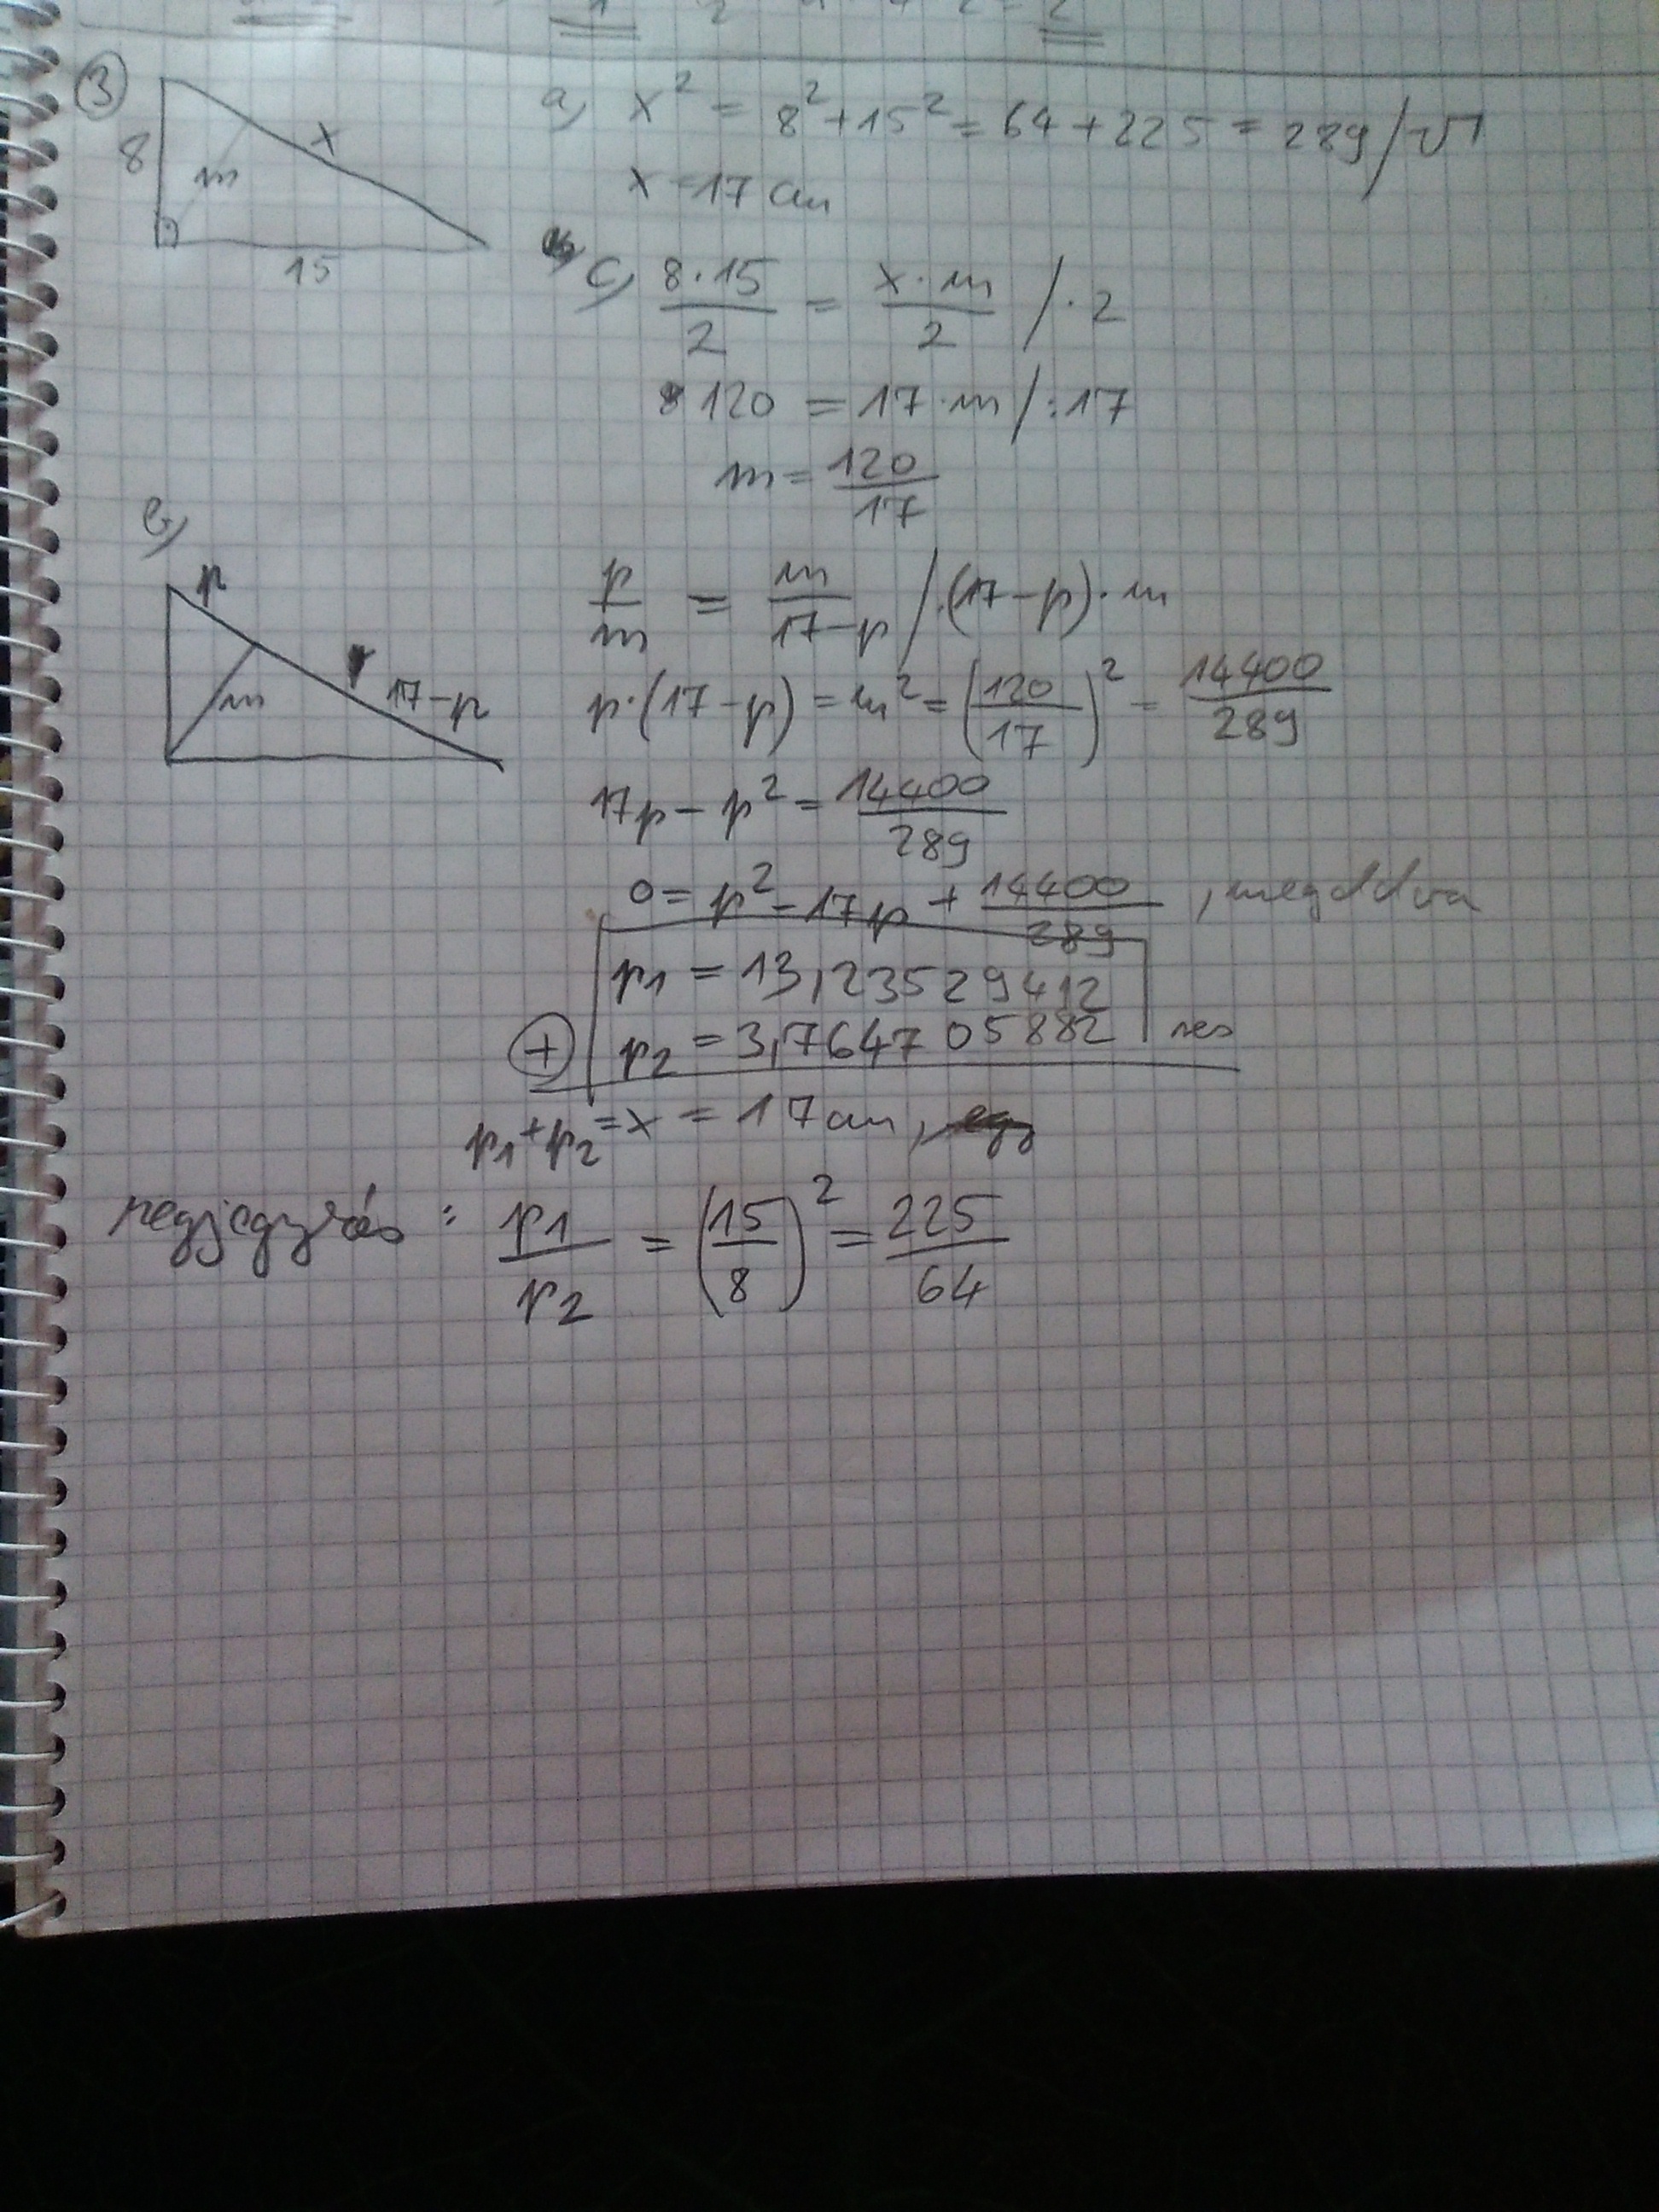 ③
8
x
m
15
a) x² = 8²+15² = 64+225 = 289 /√
x = 17 cm
c) 8·15/2 = x·m/2 /·2
120 = 17·m /:17
m = 120/17
b)
p
m
17-p
p/m = m/17-p /·(17-p)·m
p·(17-p) = m² = (120/17)² = 14400/289
17p - p² = 14400/289
0 = p² - 17p + 14400/289 , megoldva
p1 = 13,23529412
+ p2 = 3,764705882
p1+p2 = x = 17 cm,
megjegyzés: p1/p2 = (15/8)² = 225/64